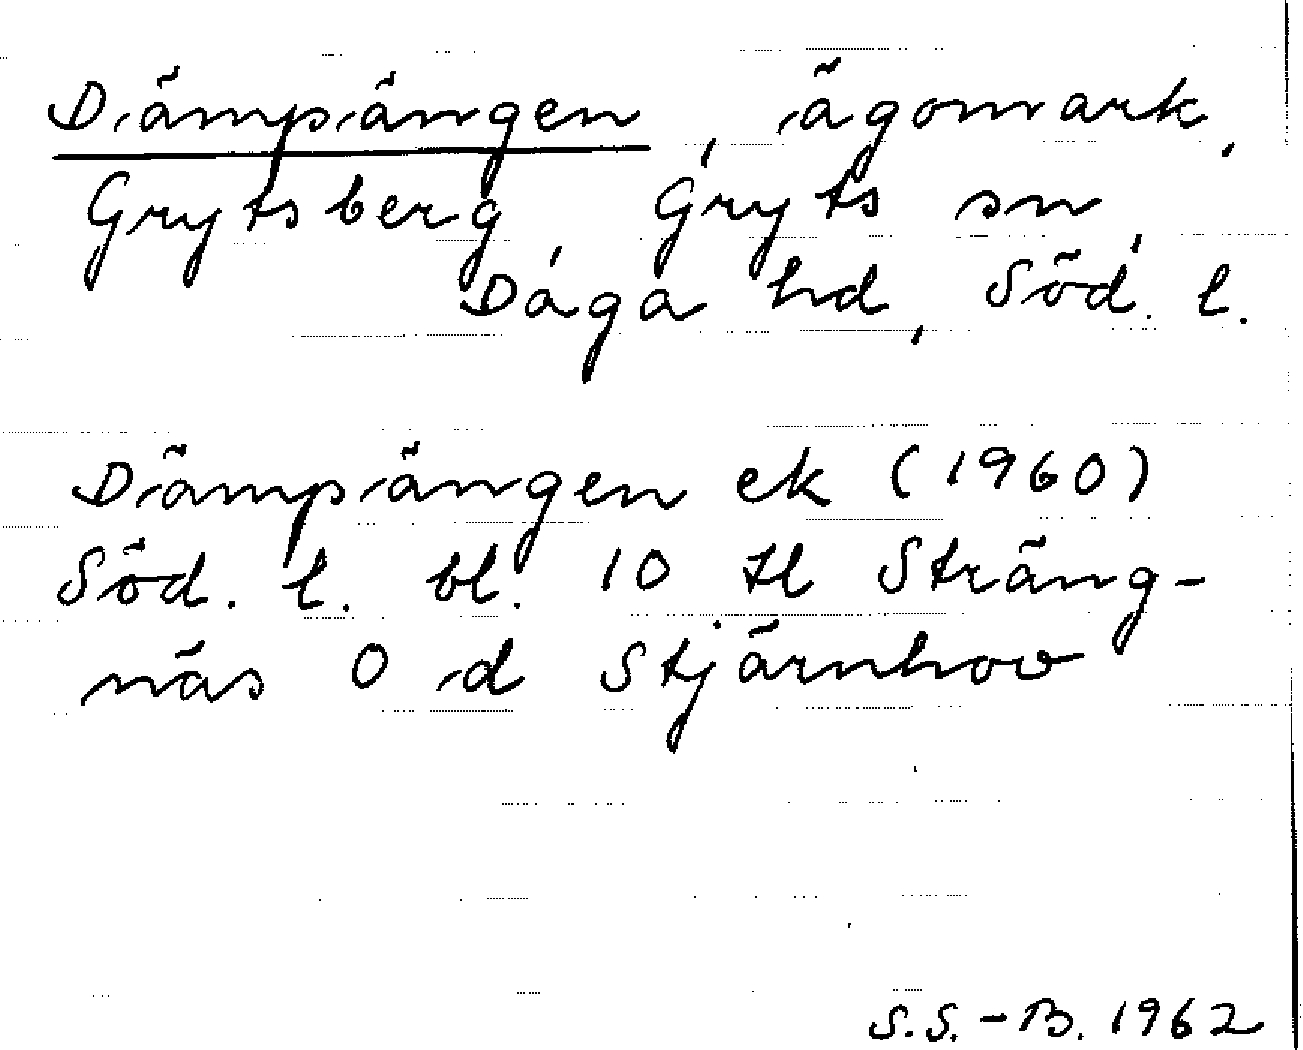 Dämpängen, ägomark,
Grytsberg, Gryts sn,
Daga hd, Söd. l.
Dämpängen ek (1960)
Söd. l. bl. 10 tl Sträng-
näs O d Stjärnhov
S.S.-B. 1962